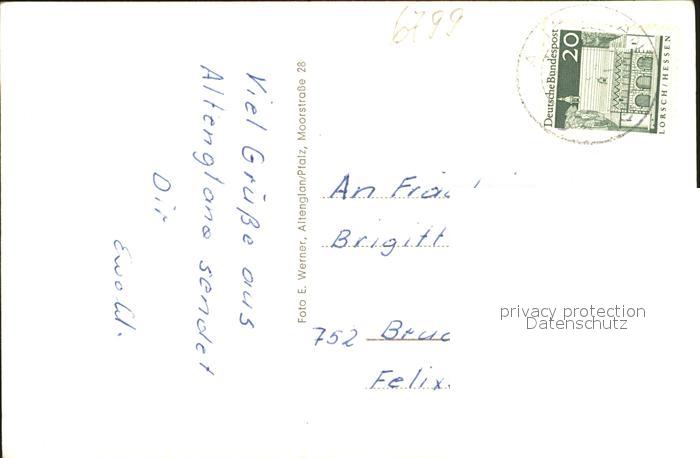 6799
Deutsche Bundespost
20
LORSCH/HESSEN
Viel Grüße aus
Altenglan sendet
Dir
Ewald.
Foto E. Werner, Altenglan/Pfalz, Moorstraße 28
An Fräu
Brigitt
752 Bruc
Felix
privacy protection
Datenschutz